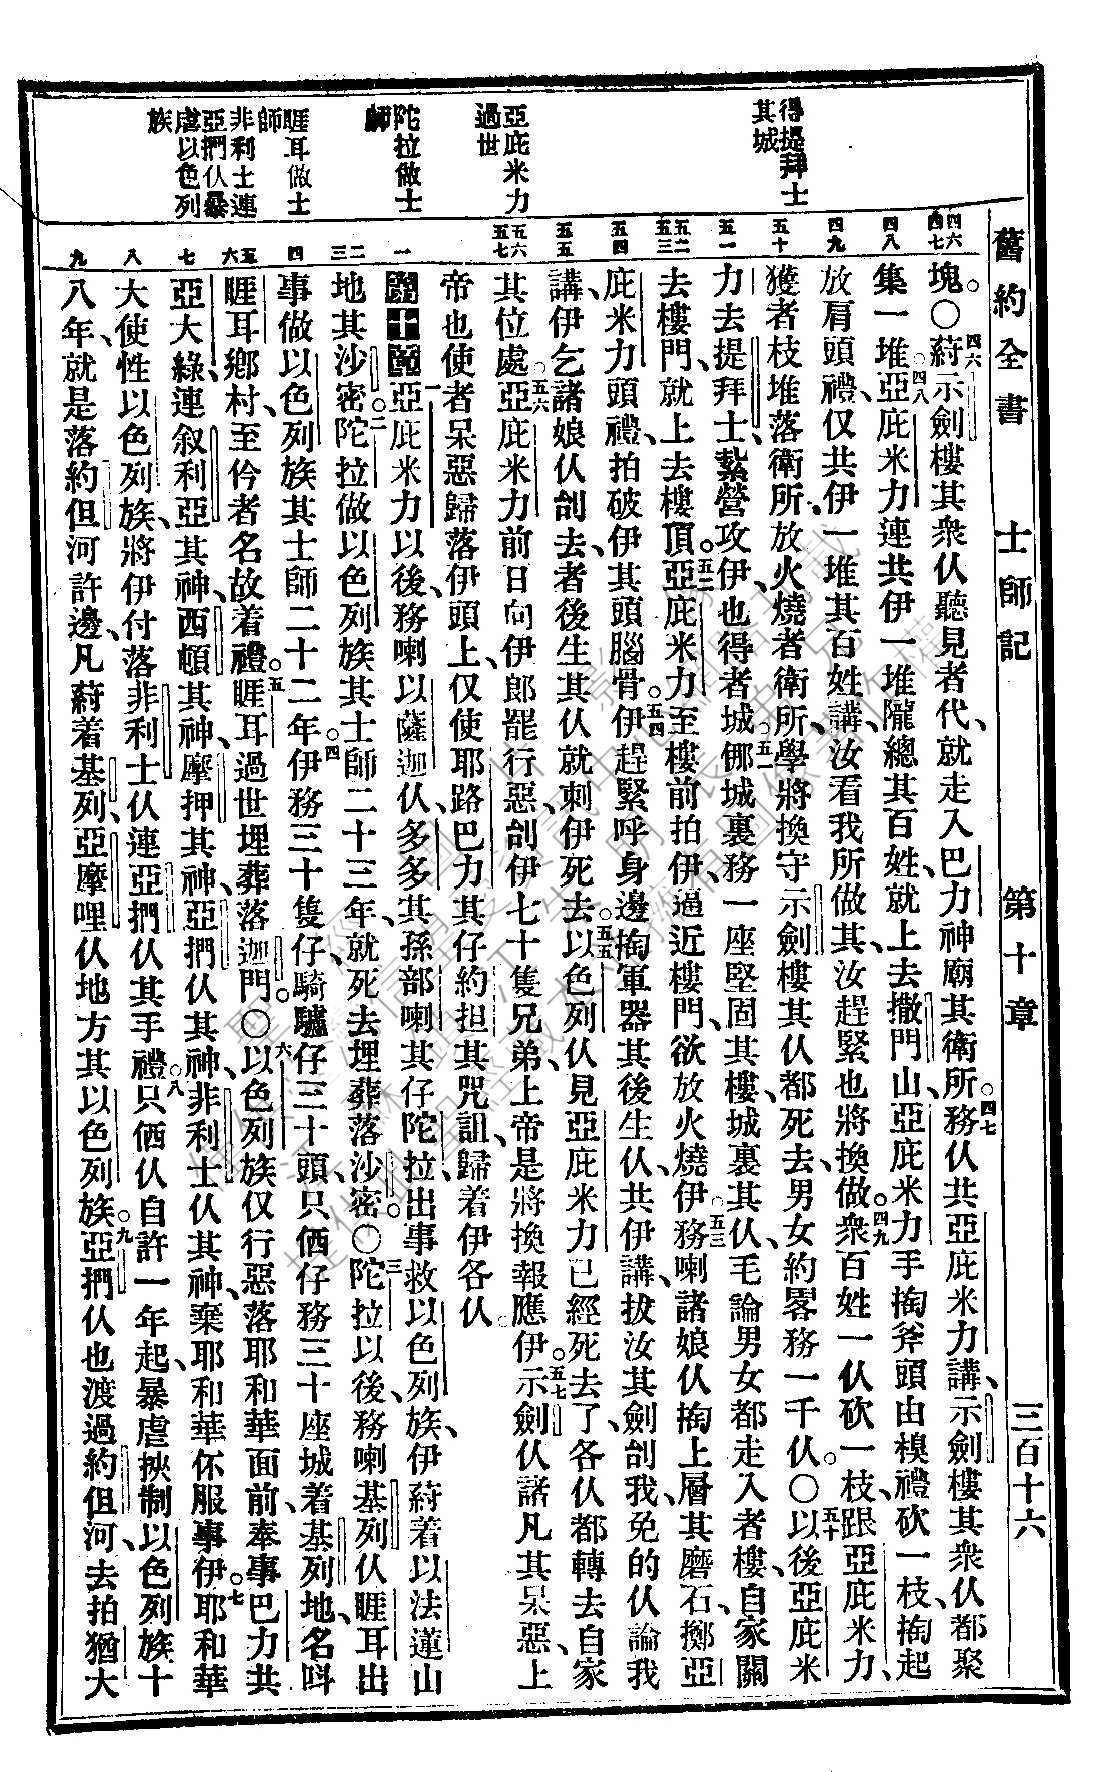 舊約全書 士師記 第十章 三百十六
得提拜士其城
亞庇米力過世
陀拉做士師
睚耳做士師
非利士連亞捫仈暴虐以色列族
塊。〇四六䔶示劍樓其衆仈聽見者代、就走入巴力神廟其衛所。四七務仈共亞庇米力講、示劍樓其衆仈都聚
集一堆、四八亞庇米力連共伊一堆隴總其百姓、就上去撒們山、亞庇米力手掏斧頭由樹禮砍一枝、掏起
放肩頭禮、仅共伊一堆其百姓講、汝看我所做其、汝趕緊也將換做。四九衆百姓一仈砍一枝、跟亞庇米力、
獲者枝堆落衛所、放火燒者衛所、學將換守示劍樓其仈都死去、男女約畧務一千仈。〇五十以後亞庇米
力去提拜士、紮營攻伊、也得者城。五一倻城裏務一座堅固其樓、城裏其仈、毛論男女都走入者樓、自家關
去樓門、就上去樓頂。五二亞庇米力至樓前拍伊、逼近樓門、欲放火燒伊。五三務喇諸娘仈掏上層其磨石、擲亞
庇米力頭禮、拍破伊其頭腦骨。五四伊趕緊呼身邊掏軍器其後生仈、共伊講、拔汝其劍刣我、免的仈論我
講、伊乞諸娘仈刣去、者後生其仈就刺伊死去。五五以色列仈見亞庇米力已經死去了、各仈都轉去自家
其位處。五六亞庇米力前日向伊郎罷行惡、刣伊七十隻兄弟、上帝是將換報應伊。五七示劍仈諸凡其呆惡、上
帝也使者呆惡歸落伊頭上、仅使耶路巴力其仔約担其咒詛、歸着伊各仈
第十章 一亞庇米力以後、務喇以薩迦仈、多多其孫、部喇其仔陀拉、出事救以色列族、伊䔶着以法蓮山
地其沙密。二陀拉做以色列族其士師二十三年、就死去、埋葬落沙密。〇三陀拉以後、務喇基列仈睚耳出
事、做以色列族其士師二十二年。四伊務三十隻仔、騎驢仔三十頭、只倻仔務三十座城、着基列地、名叫
睚耳鄉村、至仱者名故着禮。五睚耳過世、埋葬落迦門。〇六以色列族仅行惡落耶和華面前、奉事巴力共
亞大綠、連叙利亞其神、西頓其神、摩押其神、亞捫仈其神、非利士仈其神、棄耶和華伓服事伊。七耶和華
大使性以色列族、將伊付落非利士仈連亞捫仈其手禮。八只倻仈自許一年起、暴虐挾制以色列族十
八年、就是落約但河許邊、凡䔶着基列、亞摩哩仈地方其以色列族。九亞捫仈也渡過約但河、去拍猶大